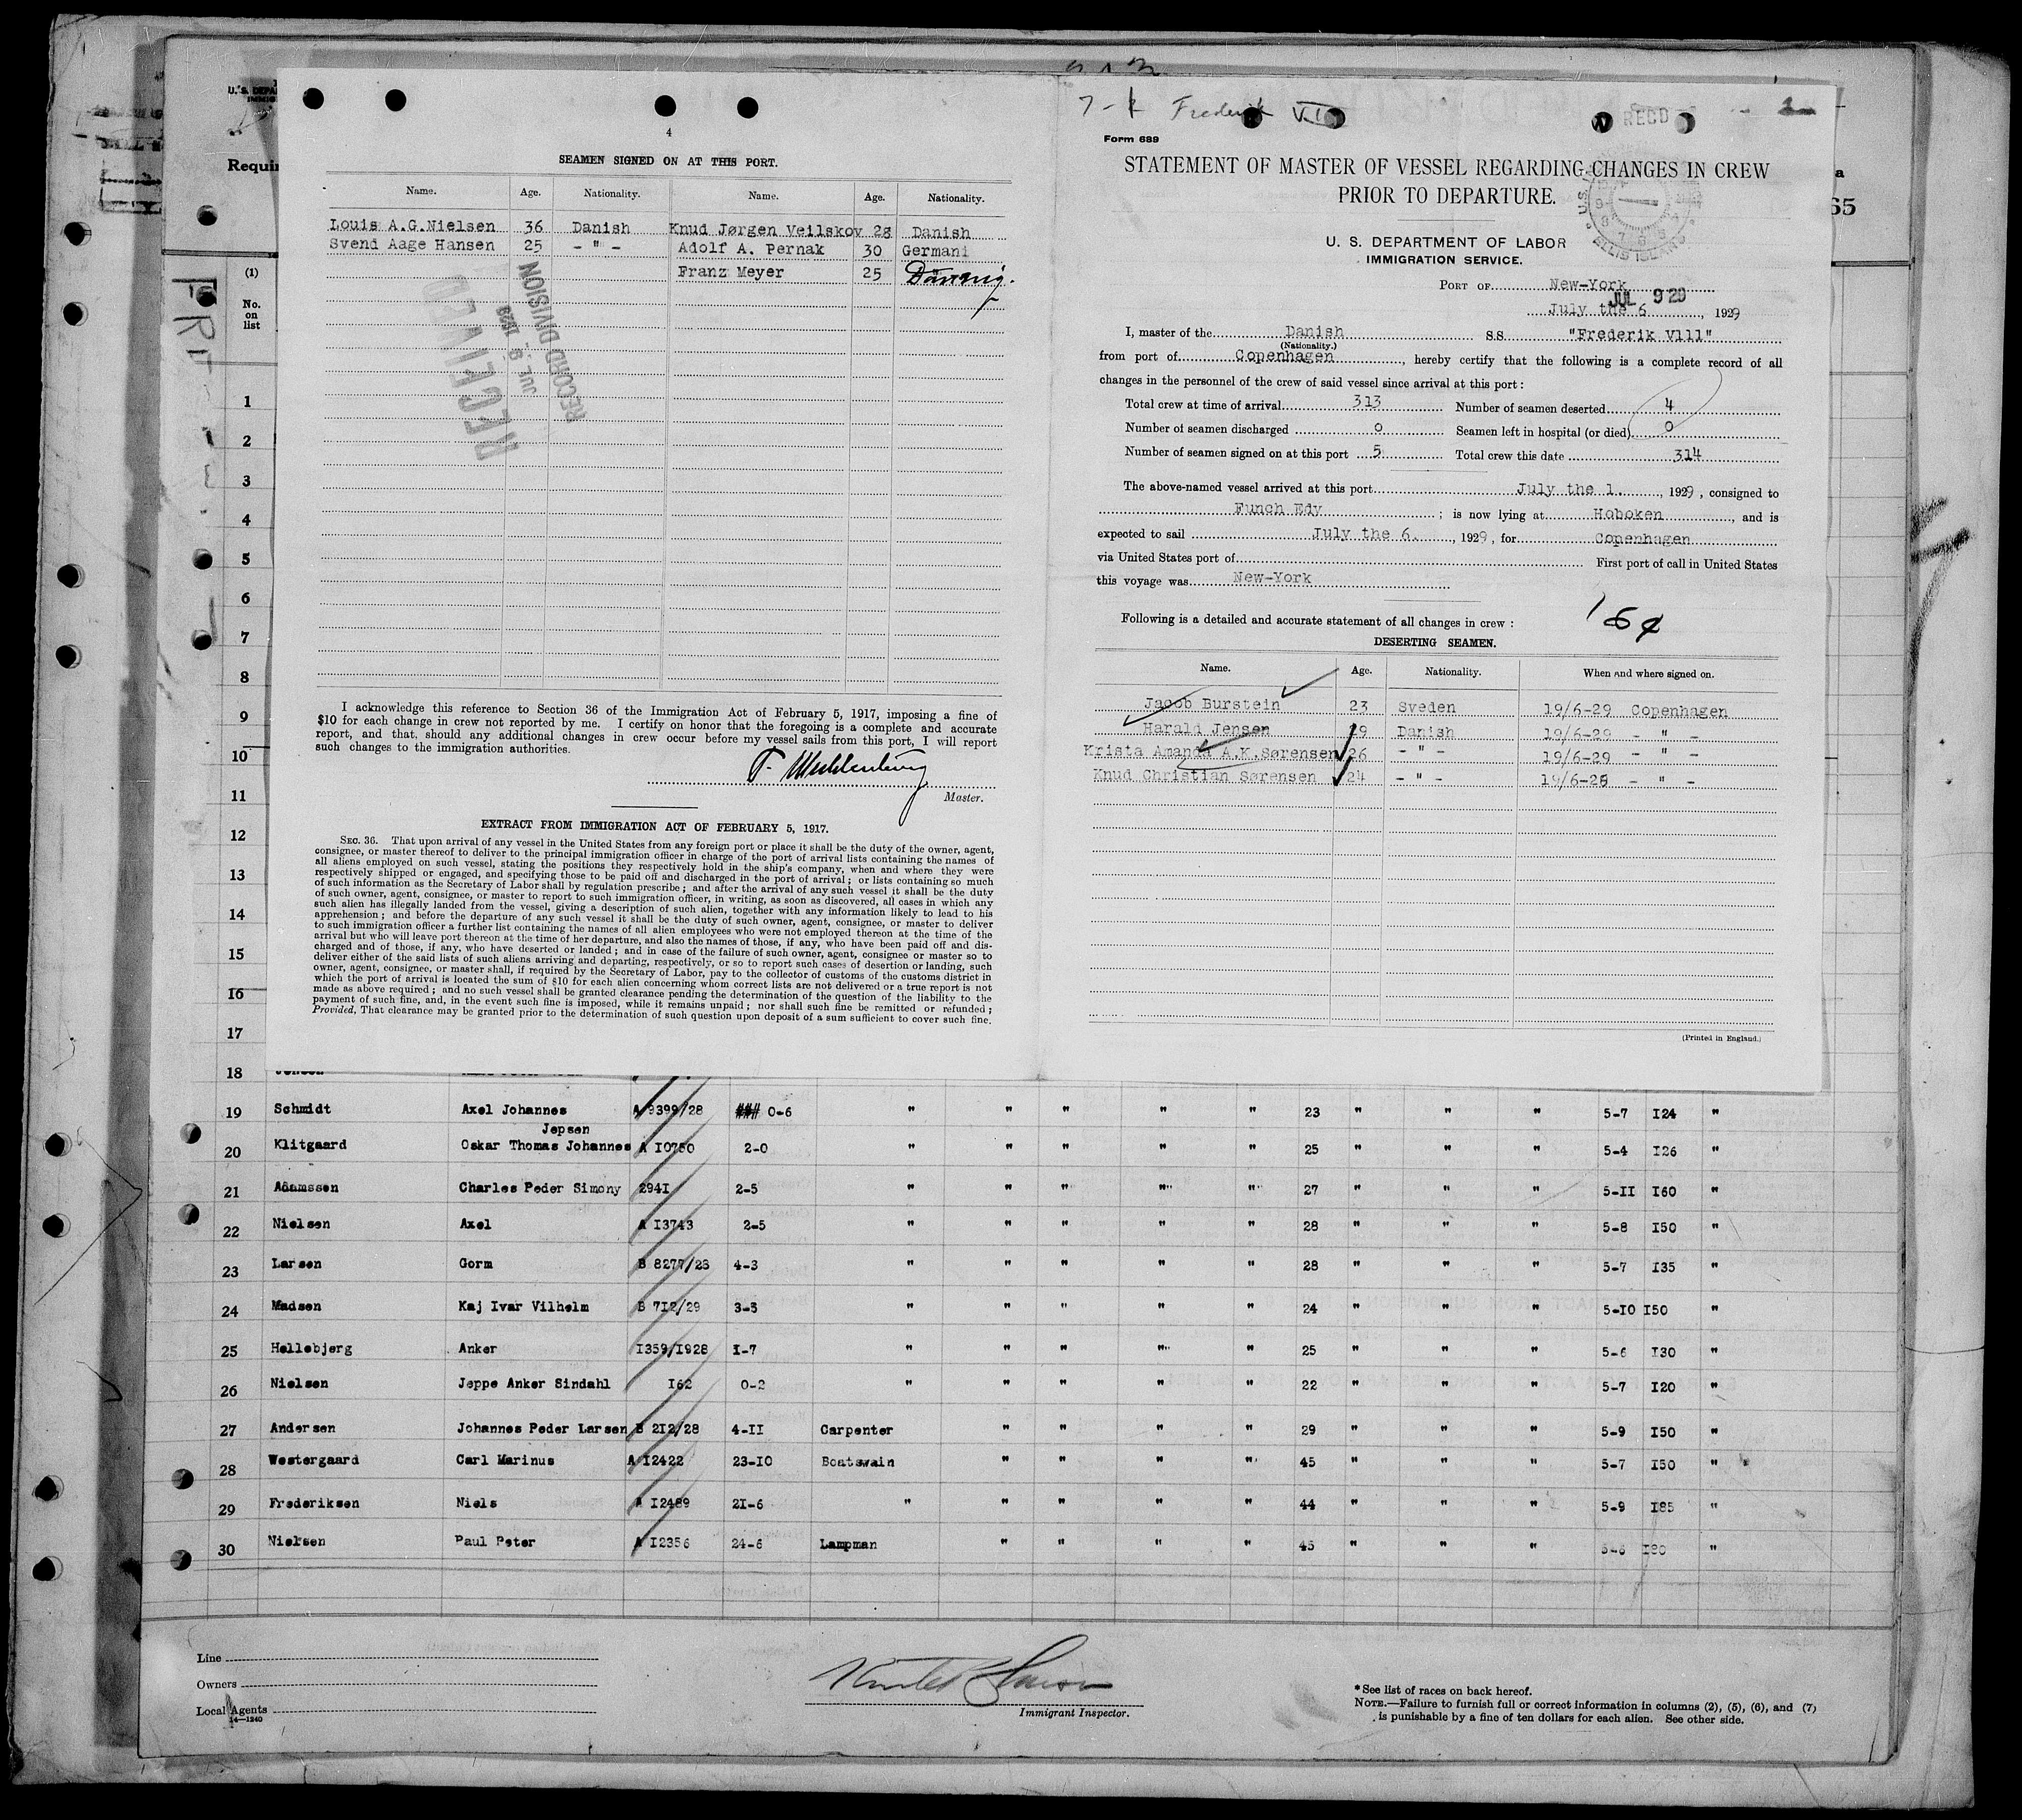 4
SEAMEN SIGNED ON AT THIS PORT.
Name. Age. Nationality. Name. Age. Nationality.
Louis A.G.Nielsen 36 Danish Knud Jørgen Veilskov 28 Danish
Svend Aage Hansen 25 - " - Adolf A. Pernak 30 Germani
Franz Meyer 25
RECEIVED
JUL 9 1929
RECORD DIVISION
I acknowledge this reference to Section 36 of the Immigration Act of February 5, 1917, imposing a fine of
$10 for each change in crew not reported by me. I certify on honor that the foregoing is a complete and accurate
report, and that, should any additional changes in crew occur before my vessel sails from this port, I will report
such changes to the immigration authorities.
Master.
EXTRACT FROM IMMIGRATION ACT OF FEBRUARY 5, 1917.
SEC. 36. That upon arrival of any vessel in the United States from any foreign port or place it shall be the duty of the owner, agent,
consignee, or master thereof to deliver to the principal immigration officer in charge of the port of arrival lists containing the names of
all aliens employed on such vessel, stating the positions they respectively hold in the ship's company, when and where they were
respectively shipped or engaged, and specifying those to be paid off and discharged in the port of arrival; or lists containing so much
of such information as the Secretary of Labor shall by regulation prescribe; and after the arrival of any such vessel it shall be the duty
of such owner, agent, consignee, or master to report to such immigration officer, in writing, as soon as discovered, all cases in which any
such alien has illegally landed from the vessel, giving a description of such alien, together with any information likely to lead to his
apprehension; and before the departure of any such vessel it shall be the duty of such owner, agent, consignee, or master to deliver
to such immigration officer a further list containing the names of all alien employees who were not employed thereon at the time of the
arrival but who will leave port thereon at the time of her departure, and also the names of those, if any, who have been paid off and dis-
charged and of those, if any, who have deserted or landed; and in case of the failure of such owner, agent, consignee or master so to
deliver either of the said lists of such aliens arriving and departing, respectively, or so to report such cases of desertion or landing, such
owner, agent, consignee, or master shall, if required by the Secretary of Labor, pay to the collector of customs of the customs district in
which the port of arrival is located the sum of $10 for each alien concerning whom correct lists are not delivered or a true report is not
made as above required; and no such vessel shall be granted clearance pending the determination of the question of the liability to the
payment of such fine, and, in the event such fine is imposed, while it remains unpaid; nor shall such fine be remitted or refunded;
Provided, That clearance may be granted prior to the determination of such question upon deposit of a sum sufficient to cover such fine.
Frederik
RECD
Form 689
STATEMENT OF MASTER OF VESSEL REGARDING CHANGES IN CREW
PRIOR TO DEPARTURE.
ELLIS ISLAND
U. S. DEPARTMENT OF LABOR
IMMIGRATION SERVICE.
PORT OF New-York
JUL 9 29
July the 6, 1929
I, master of the Danish SS "Frederik Vlll"
(Nationality.)
from port of Copenhagen, hereby certify that the following is a complete record of all
changes in the personnel of the crew of said vessel since arrival at this port:
Total crew at time of arrival 313 Number of seamen deserted 4
Number of seamen discharged 0 Seamen left in hospital (or died) 0
Number of seamen signed on at this port 5 Total crew this date 314
The above-named vessel arrived at this port July the 1., 1929, consigned to
Funch Edy; is now lying at Hoboken, and is
expected to sail July the 6., 1929, for Copenhagen
via United States port of First port of call in United States
this voyage was New-York
Following is a detailed and accurate statement of all changes in crew:
DESERTING SEAMEN.
Name. Age. Nationality. When and where signed on.
Jacob Burstein 23 Sveden 19/6-29 Copenhagen
Harald Jensen 19 Danish 19/6-29 - " -
Krista Amanda A.K.Sørensen 26 - " - 19/6-29 - " -
Knud Christian Sørensen 24 - " - 19/6-28 - " -
(Printed in England.)
Requir
(1)
No.
on
list
65
1
2
3
4
5
6
7
8
9
10
11
12
13
14
15
16
17
18
19 Schmidt Axel Johannes A 9399/28 0-6 " " " " " 23 " " " 5-7 I24 "
Jepsen
20 Klitgaard Oskar Thomas Johannes A I0750 2-0 " " " " " 25 " " " 5-4 I26 "
21 Adamssen Charles Peder Simony 294I 2-5 " " " " " 27 " " " 5-II I60 "
22 Nielsen Axel A I3743 2-5 " " " " " 28 " " " 5-8 I50 "
23 Larsen Gorm B 8277/28 4-3 " " " " " 28 " " " 5-7 I35 "
24 Madsen Kaj Ivar Vilhelm B 7I2/29 3-3 " " " " " 24 " " " 5-I0 I50 "
25 Hellebjerg Anker I359/I928 I-7 " " " " " 25 " " " 5-6 I30 "
26 Nielsen Jeppe Anker Sindahl I62 0-2 " " " " " 22 " " " 5-7 I20 "
27 Andersen Johannes Peder Larsen B 2I2/28 4-II Carpenter " " " " 29 " " " 5-9 I50 "
28 Westergaard Carl Marinus A I2422 23-I0 Boatswain " " " " 45 " " " 5-7 I50 "
29 Frederiksen Niels A I2489 2I-6 " " " " " 44 " " " 5-9 I85 "
30 Nielsen Paul Peter A I2356 24-6 Lampman " " " " 45 " " " 5-6 I80 "
Line
Owners
Local Agents
14—1240
Immigrant Inspector.
* See list of races on back hereof.
NOTE.—Failure to furnish full or correct information in columns (2), (5), (6), and (7)
is punishable by a fine of ten dollars for each alien. See other side.